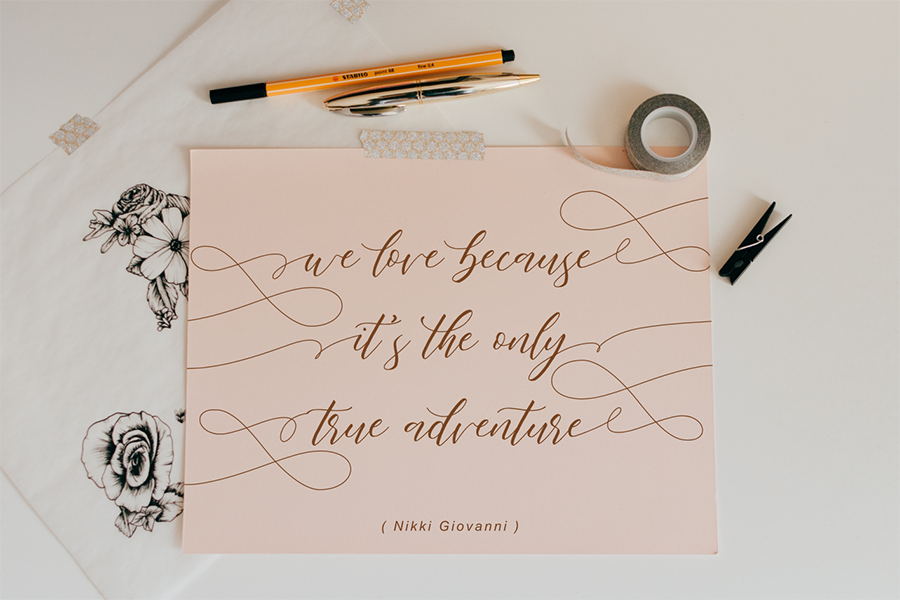 STABILO point 88 fine 0,4
we love because
it's the only
true adventure
( Nikki Giovanni )